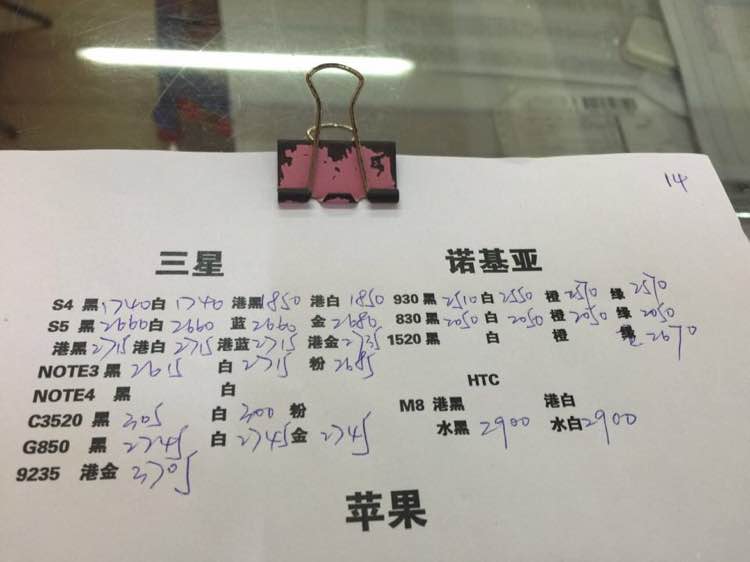 14
三星
S4 黑1740白 1740 港黑1850 港白 1850
S5 黑2660白2660 蓝 2660 金 2680
港黑2715港白 2715 港蓝2715 港金2735
NOTE3 黑 2615 白 2715 粉 2685
NOTE4 黑 白
C3520 黑 305 白 300 粉
G850 黑 2745 白 2745金 2745
9235 港金 3705
诺基亚
930 黑2510白2550 橙2570 绿 2570
830 黑2050白 2050 橙2050 绿 2050
1520黑 白 橙 绿 2670
HTC
M8 港黑 港白
水黑 2900 水白2900
苹果